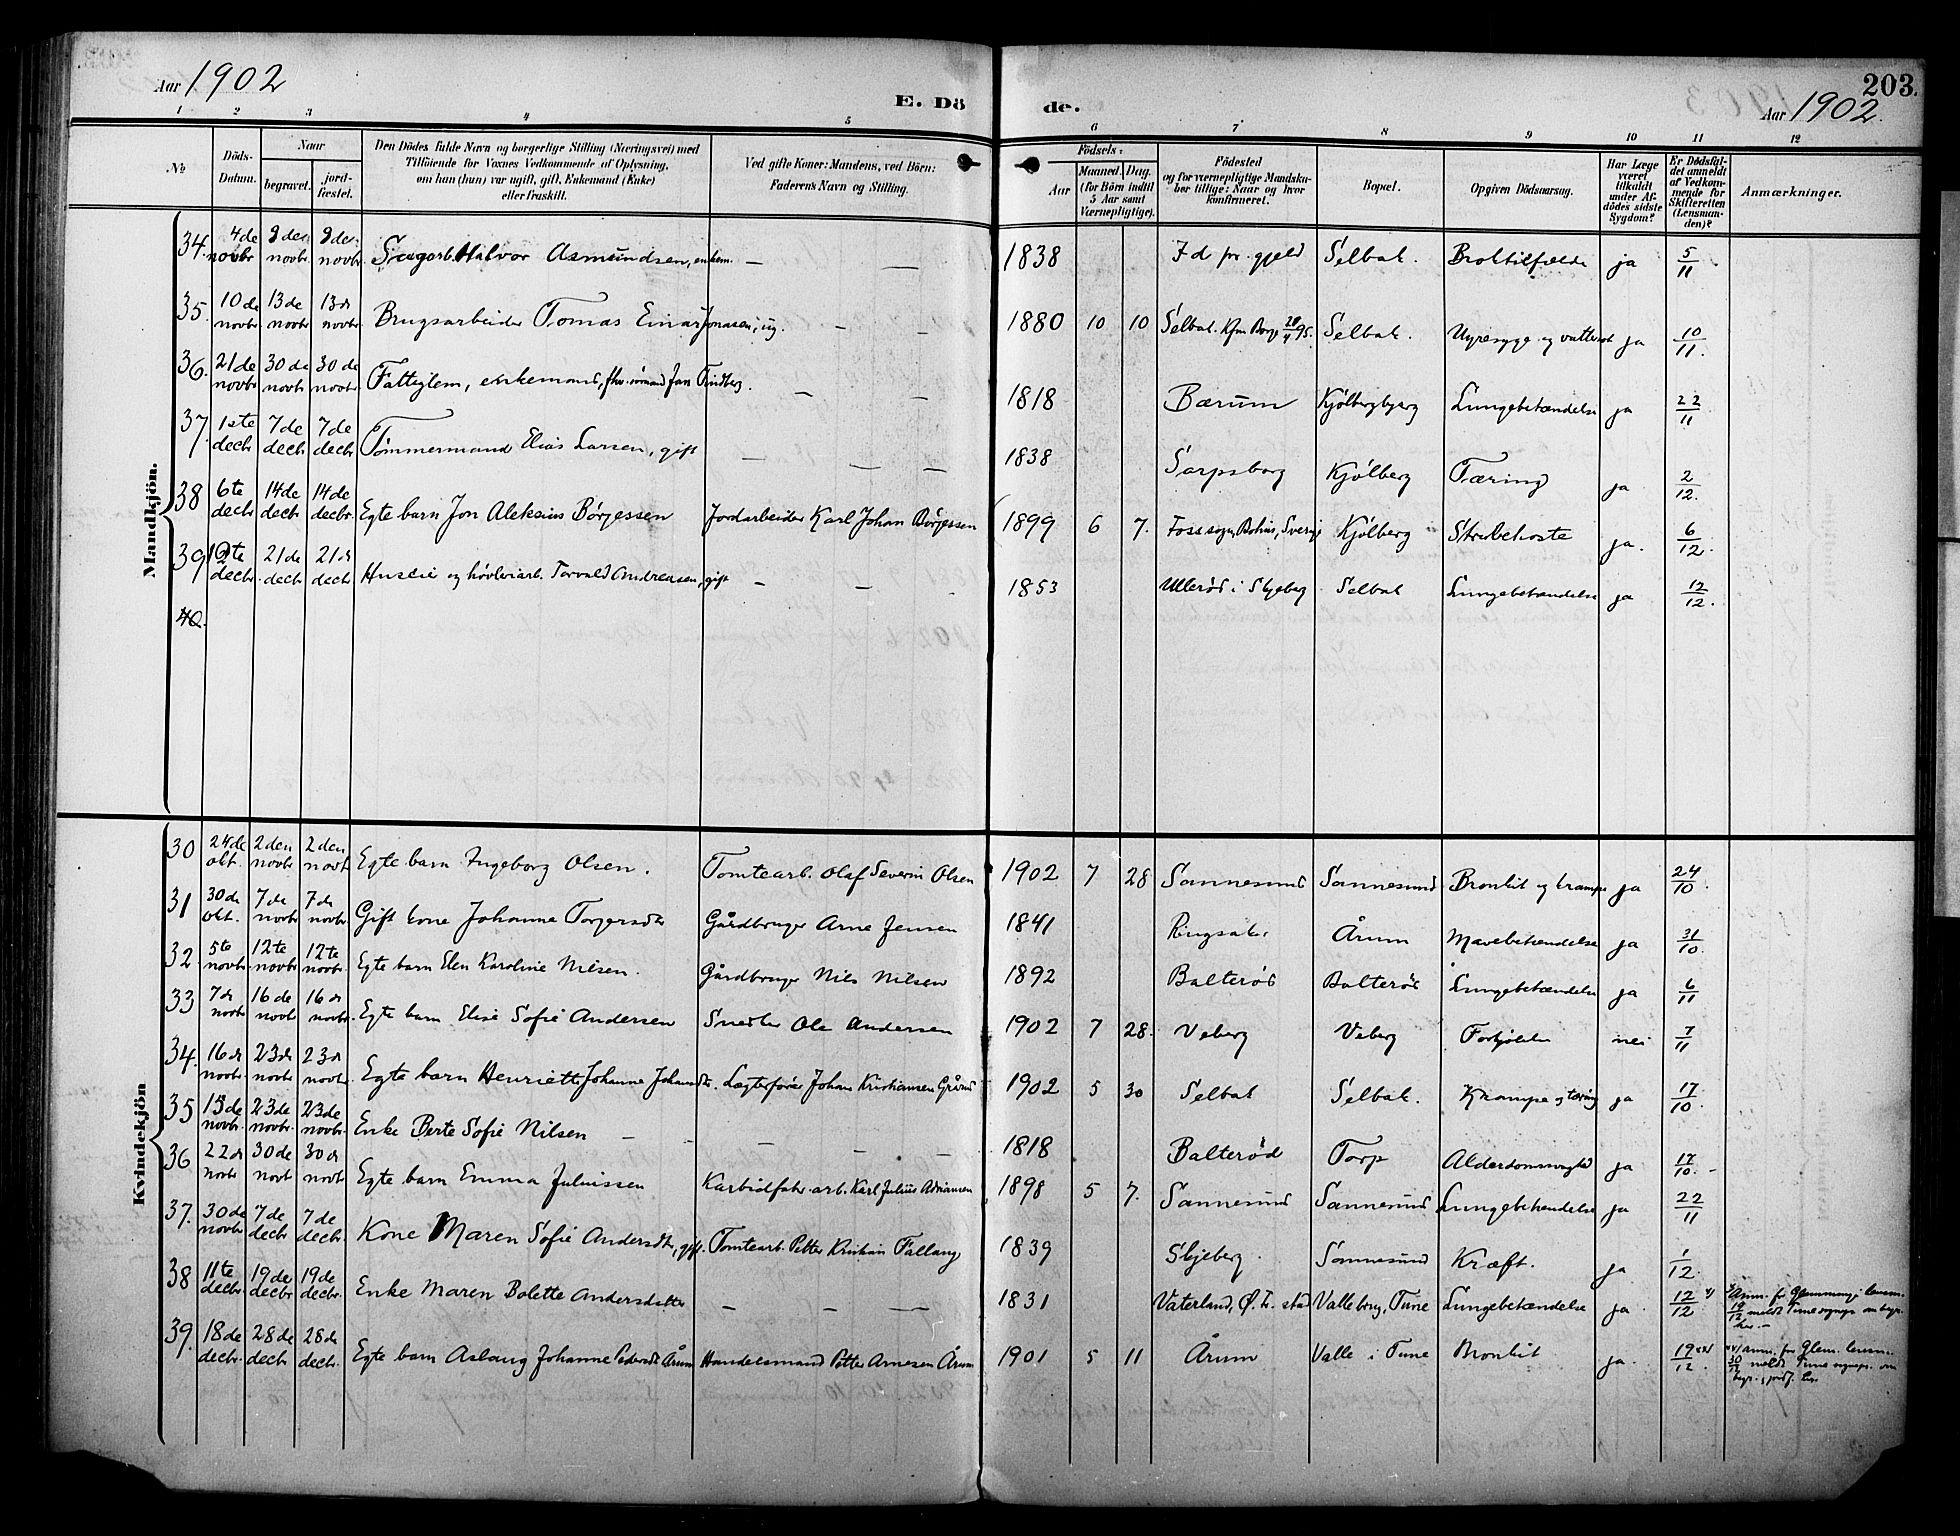 Aar 1902
E. Dö
de.
203.
Aar 1902.
1 2 3 4 5 6 7 8 9 10 11 12
No
Döds-Datum.
Naar
begravet.
jord-fæstet.
Den Dödes fulde Navn og borgerlige Stilling (Næringsvei) med
Tilföiende for Voxnes Vedkommende af Oplysning,
om han (hun) var ugift, gift, Enkemand (Enke)
eller fraskilt.
Ved gifte Koner: Mandens, ved Börn:
Faderens Navn og Stilling.
Födsels:
Aar
Maaned. Dag.
(for Börn indtil
5 Aar samt
Værnepligtige).
Födested
og for værnepligtige Mandska-
ber tillige: Naar og hvor
konfirmeret.
Bopæl.
Opgiven Dödsaarsag.
Har Læge
været
tilkaldt
under Af-
dödes sidste
Sygdom?
Er Dödsfal-
det anmeldt
af Vedkom-
mende for
Skifteretten
(Lensman-
den)?
Anmærkninger.
Mandkjön.
34. 4de novbr 9de novbr 9de novbr Sagarb. Halvor Asmundsen, enkem. — — 1838 Id pr.gjeld Selbak. ja 5/11.
35. 10de novbr 13de novbr 13de novbr Brugsarbeider Tomas Einar Jonasen, ug. — — 1880 10 10 Selbak. Kfm Borge Selbak. Nyresyge og vattersot ja 10/11.
36. 21de novbr 30de novbr 30de novbr Fattiglem, enkemand, Jan Tindberg. — — 1818 Bærum Kjølbergbjerg Lungebetændelse ja 22/11
37. 1ste decbr 7de decbr 7de decbr Tømmermand Elias Larsen, gift — — — 1838 Sarpsborg Kjølberg Tæring ja 2/12.
38 6te decbr 14de decbr 14de decbr Egte barn Jon Aleksius Børjessen Jordarbeider Karl Johan Børjessen 1899 6 7. Foss sogn, Bohus, Sverige Kjølberg Strubehoste ja. 6/12.
39 12te decbr. 21de decbr 21de decbr Huseier og høvleriarb. Torvald Andreasen, gift — — 1853 Ullerød i Skjeberg Selbak Lungebetændelse ja 12/12.
40.
Kvindekjön
30 24de okt. 2den novbr 2den novbr Egte barn Ingeborg Olsen. Tomtearb. Olaf Severin Olsen 1902 7 28 Sannesund Sannesund Bronkit og krampe ja 24/10.
31 30de okt. 7de novbr 7de novbr Gift kone Johanne Torgersdtr Gårdbruger Arne Jensen 1841 Ringsaker Årum Mavebetændelse ja 31/10.
32. 5te novbr 12te novbr 12te novbr. Egte barn Elen Karoline Nilsen. Gårdbruger Nils Nilsen 1892 Balterød Balterød Lungebetændelse ja 6/11
33 7de novbr 16de novbr 16de novbr. Egte barn Elise Sofie Andersen Snedker Ole Andersen 1902 7 28. Veberg Veberg Forkjølelse nei 7/11
34. 16de novbr. 23de novbr. 23de novbr. Egte barn Henriette Johanne Johansdtr. Lægterfører Johan Kristiansen 1902 5 30 Selbak Selbak. Krampe og tæring ja 17/10.
35 15de novbr. 23de novbr. 23de novbr. Enke Berte Sofie Nilsen — — — — — 1818 Balterød Torp Alderdomssvaghed ja 17/10. -
36 22de novbr 30de novbr 30de novbr Egte barn Emma Juliussen Karbidfabr.arb. Karl Julius Adriansen 1898 5 7. Sannesund Sannesund Lungebetændelse ja 22/11
37. 30de novbr 7de decbr 7de decbr. Kone Maren Sofie Andersdtr, gift. Tomtearb. Petter Kristian Fallang 1839 Skjeberg. Sannesund Kræft. ja 1/12.
38 11te decbr. 19de decbr 19de decbr. Enke Maren Bolette Andersdatter — — — 1831 Vaterland, stad Valle brug, Tune Lungebetændelse ja. 12/12 Anm. fr. lensm. 19/12 meldt Tune sogns om begr. her. —
39. 18de decbr. 28de decbr 28de decbr. Egte barn Aslaug Johanne Pedersdtr Årum Handelsmand Petter Arnesen Årum 1901 5 11 Årum Valle i Tune Bronkit ja. 19/12. anm. fr. Glem. lensm. 30/12 meldt Tune om begr. og jordf. her.